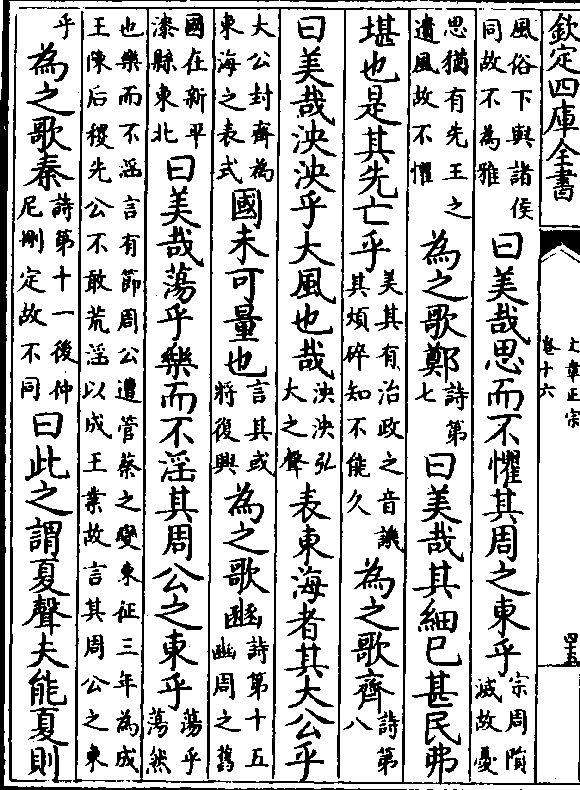 欽定四庫全書
文章正宗
卷十六
風俗下與諸侯
同故不為雅
曰美哉思而不懼其周之東乎
宗周隕
滅故憂
思猶有先王之
遺風故不懼
為之歌鄭
詩第
七
曰美哉其細已甚民弗
堪也是其先亡乎
美其有治政之音譏
其煩碎知不能久
為之歌齊
詩第
八
曰美哉泱泱乎大風也哉
泱泱弘
大之聲
表東海者其大公乎
大公封齊為
東海之表式
國未可量也
言其或
將復興
為之歌豳
詩第十五
豳周之舊
國在新平
漆縣東北
曰美哉蕩乎樂而不淫其周公之東乎
蕩乎
蕩然
也樂而不淫言有節周公遭管蔡之變東征三年為成
王陳后稷先公不敢荒淫以成王業故言其周公之東
乎
為之歌秦
詩第十一後仲
尼刪定故不同
曰此之謂夏聲夫能夏則